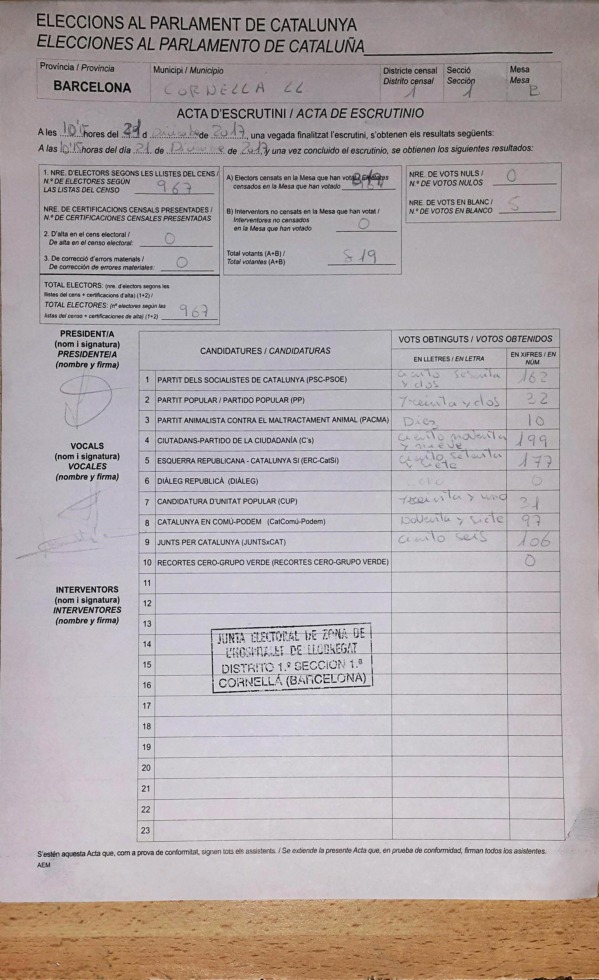 ELECCIONS AL PARLAMENT DE CATALUNYA
ELECCIONES AL PARLAMENTO DE CATALUÑA
Província / Provincia
BARCELONA
Municipi / Municipio
CORNELLA LL
Districte censal
Distrito censal 1
Secció
Sección 1
Mesa
Mesa B
ACTA D'ESCRUTINI / ACTA DE ESCRUTINIO
A les 10'15 hores del 21 d de 2017, una vegada finalitzat l'escrutini, s'obtenen els resultats següents:
A las 10'15 horas del día 21 de Diciembre de 2017 y una vez concluido el escrutinio, se obtienen los siguientes resultados:
1. NRE. D'ELECTORS SEGONS LES LLISTES DEL CENS /
N.º DE ELECTORES SEGÚN
LAS LISTAS DEL CENSO 967
NRE. DE CERTIFICACIONS CENSALS PRESENTADES /
N.º DE CERTIFICACIONES CENSALES PRESENTADAS
2. D'alta en el cens electoral /
De alta en el censo electoral: 0
3. De correcció d'errors materials /
De corrección de errores materiales: 0
TOTAL ELECTORS: (nre. d'electors segons les
llistes del cens + certificacions d'alta) (1+2) /
TOTAL ELECTORES: (nº electores según las
listas del censo + certificaciones de alta) (1+2) 967
A) Electors censats en la Mesa que han votat / Electores
censados en la Mesa que han votado
B) Interventors no censats en la Mesa que han votat /
Interventores no censados
en la Mesa que han votado 0
Total votants (A+B) /
Total votantes (A+B) 819
NRE. DE VOTS NULS /
N.º DE VOTOS NULOS 0
NRE. DE VOTS EN BLANC /
N.º DE VOTOS EN BLANCO 5
PRESIDENT/A
(nom i signatura)
PRESIDENTE/A
(nombre y firma)
VOCALS
(nom i signatura)
VOCALES
(nombre y firma)
INTERVENTORS
(nom i signatura)
INTERVENTORES
(nombre y firma)
CANDIDATURES / CANDIDATURAS
VOTS OBTINGUTS / VOTOS OBTENIDOS
EN LLETRES / EN LETRA
EN XIFRES / EN NÚM.
1 PARTIT DELS SOCIALISTES DE CATALUNYA (PSC-PSOE) ciento sesenta y dos 162
2 PARTIT POPULAR / PARTIDO POPULAR (PP) treinta y dos 32
3 PARTIT ANIMALISTA CONTRA EL MALTRACTAMENT ANIMAL (PACMA) Diez 10
4 CIUTADANS-PARTIDO DE LA CIUDADANÍA (C's) ciento noventa y nueve 199
5 ESQUERRA REPUBLICANA - CATALUNYA SÍ (ERC-CatSí) ciento setenta y siete 177
6 DIÀLEG REPUBLICÀ (DIÀLEG) cero 0
7 CANDIDATURA D'UNITAT POPULAR (CUP) treinta y uno 31
8 CATALUNYA EN COMÚ-PODEM (CatComú-Podem) noventa y siete 97
9 JUNTS PER CATALUNYA (JUNTSxCAT) ciento seis 106
10 RECORTES CERO-GRUPO VERDE (RECORTES CERO-GRUPO VERDE) 0
11
12
13
14
15
16
17
18
19
20
21
22
23
JUNTA ELECTORAL DE ZONA DE
L'HOSPITALET DE LLOBREGAT
DISTRITO 1.º SECCION 1.ª
CORNELLÁ (BARCELONA)
S'estén aquesta Acta que, com a prova de conformitat, signen tots els assistents. / Se extiende la presente Acta que, en prueba de conformidad, firman todos los asistentes.
AEM